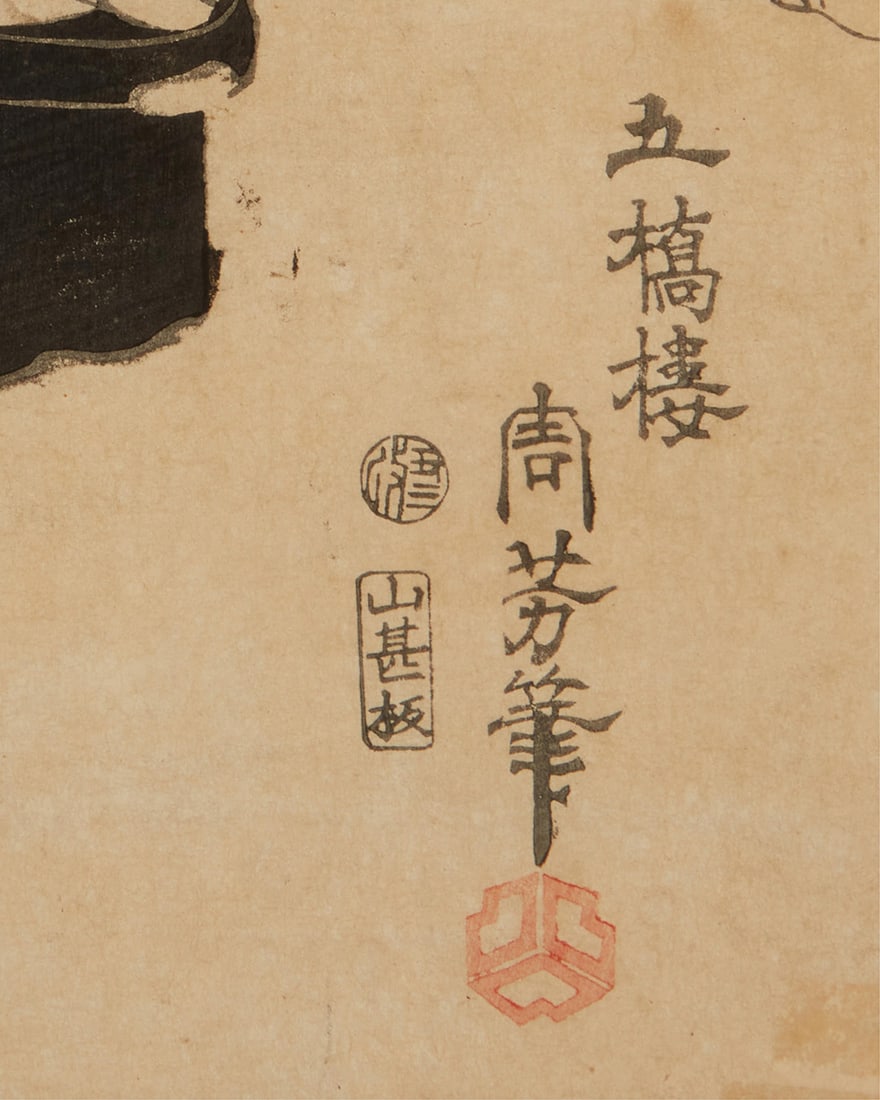 五橋樓
周芳筆
山甚板